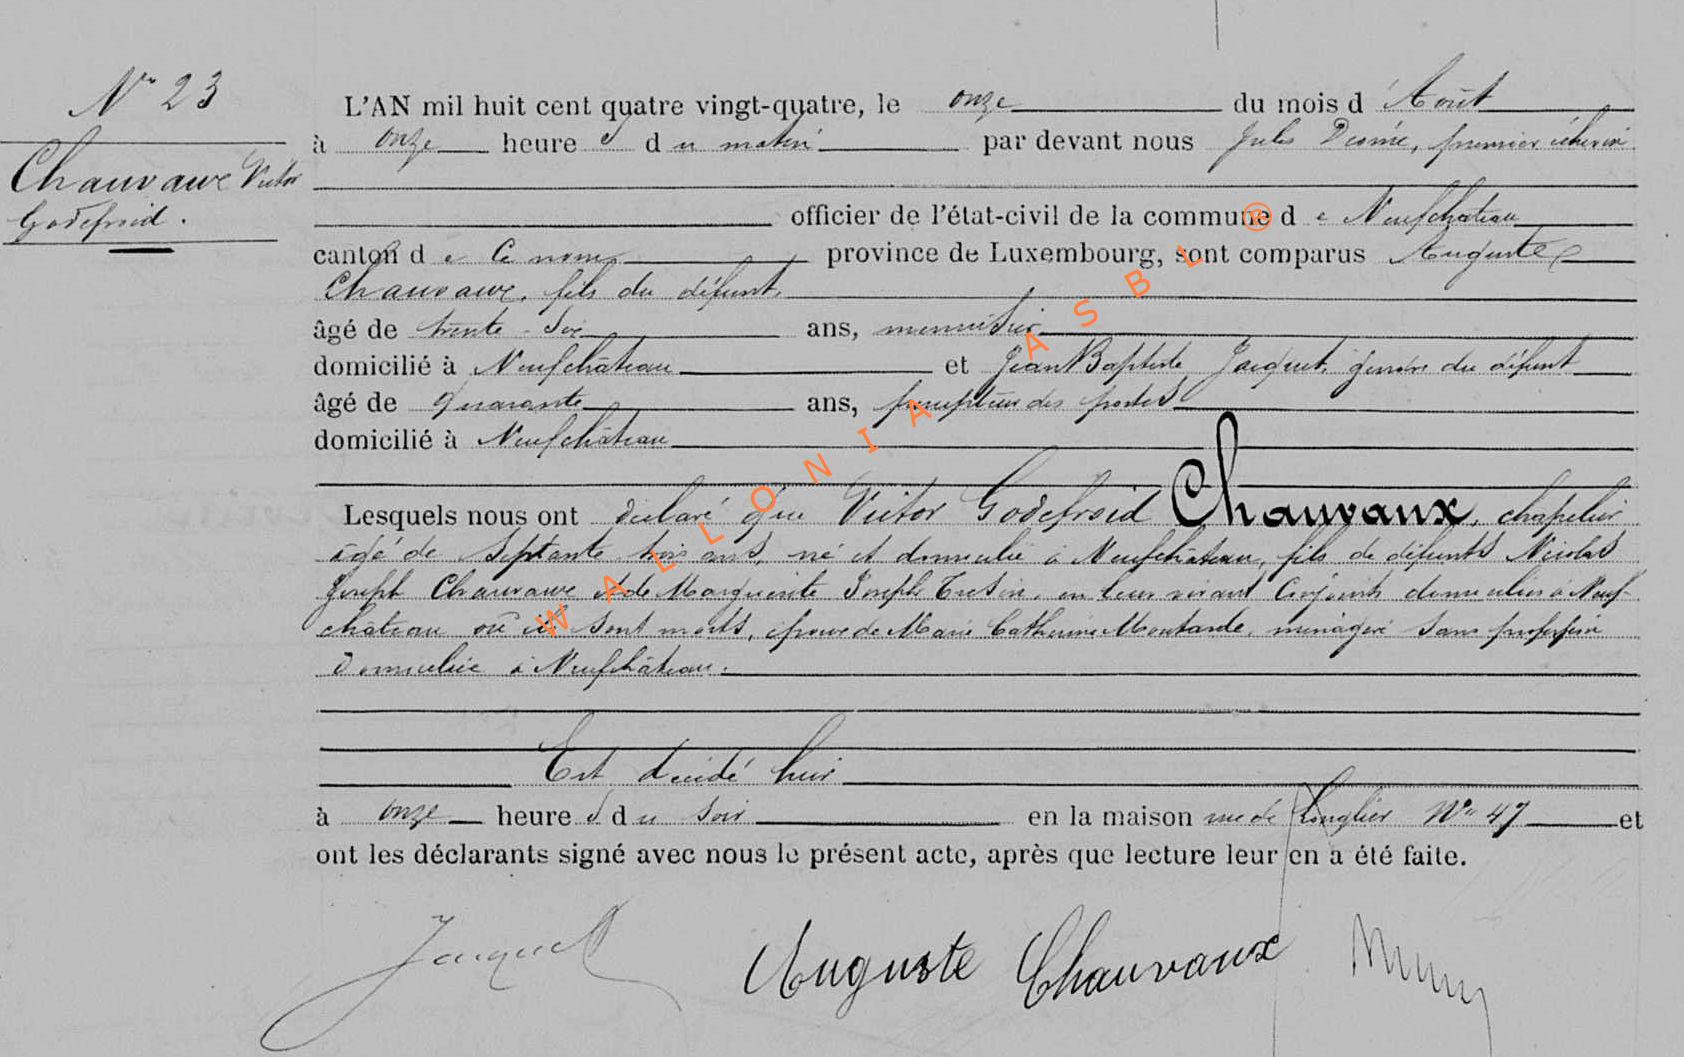 N° 23
Chauvaux Victor
Godefroid.
L'AN mil huit cent quatre vingt-quatre, le onze du mois d'Août
à onze heures du matin par devant nous Jules premier échevin
officier de l'état-civil de la commune de Neufchâteau
canton de Ce nom province de Luxembourg, sont comparus Auguste
Chauvaux, fils du défunt,
âgé de trente-six ans, menuisier
domicilié à Neufchâteau et Jean Baptiste Jacquet, gendre du défunt
âgé de quarante ans, percepteur des postes
domicilié à Neufchâteau
Lesquels nous ont déclaré que Victor Godefroid Chauvaux, chapelier
âgé de septante trois ans, né et domicilié à Neufchâteau, fils de défunts Nicolas
Joseph Chauvaux et de Marguerite Joseph en leur vivant Conjoints domiciliés à Neuf-
château où ils sont morts, époux de Marie Catherine Moutarde, ménagère sans profession
domiciliée à Neufchâteau.
Est décédé hier
à onze heures du soir en la maison rue de Longlier N° 47 et
ont les déclarants signé avec nous le présent acte, après que lecture leur en a été faite.
Jacquet Auguste Chauvaux
WALLONIA ASBL ®